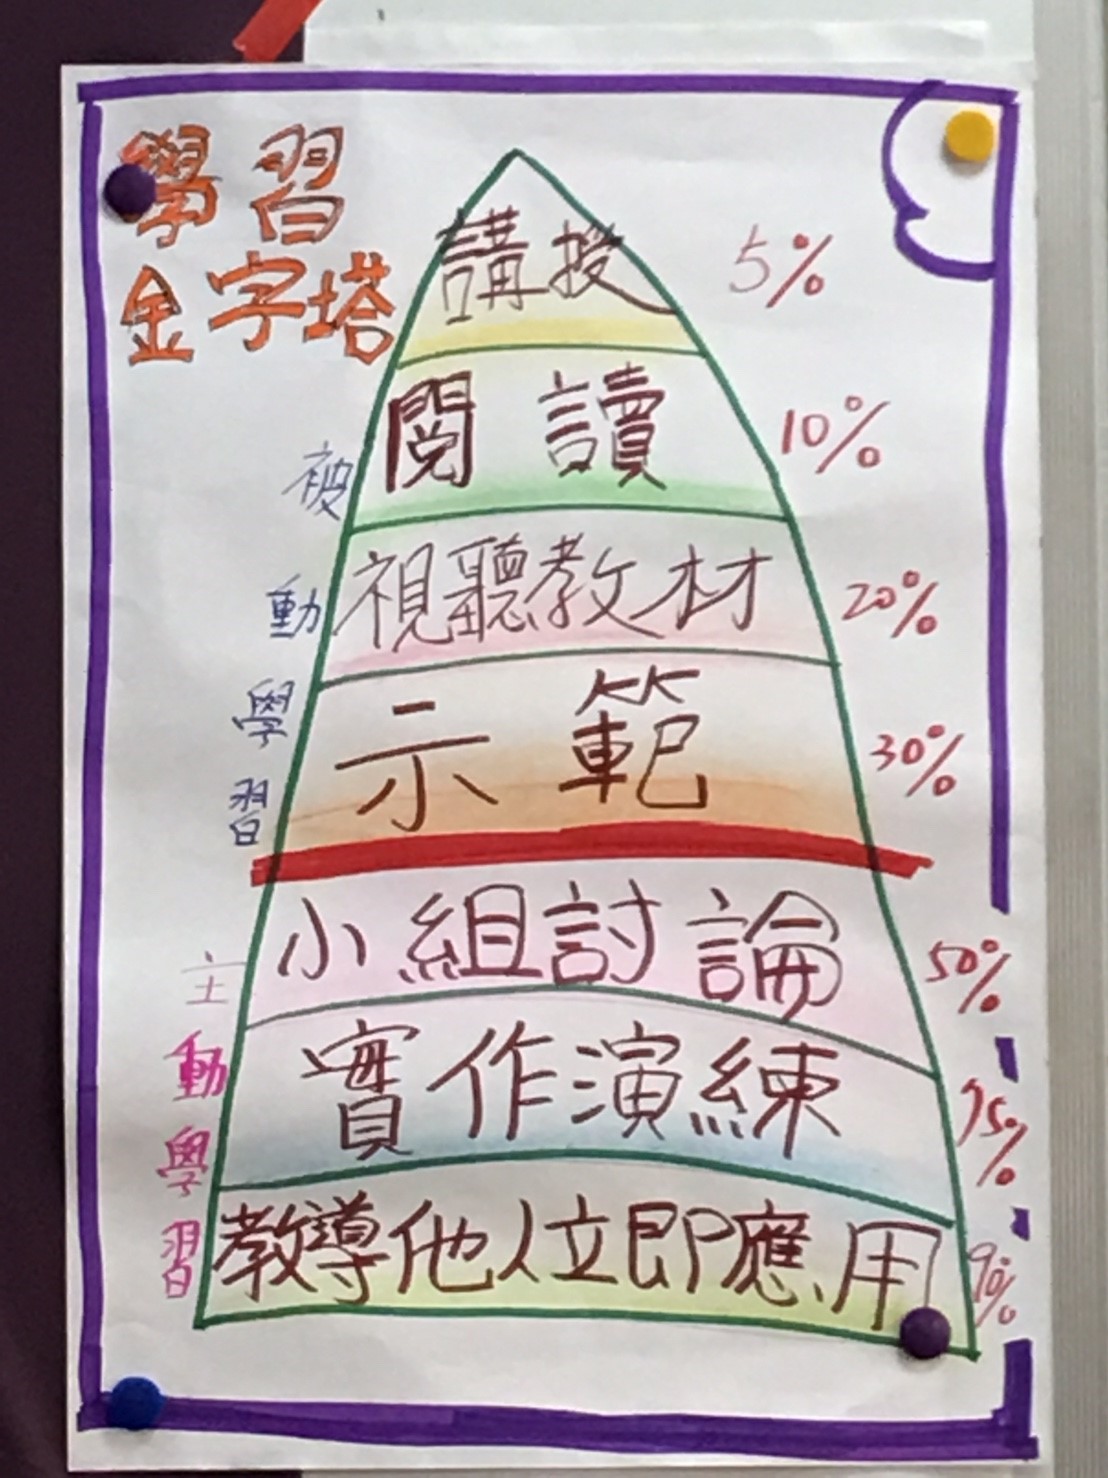 學習
金字塔
講授 5%
閱讀 10%
視聽教材 20%
示範 30%
小組討論 50%
實作演練 75%
教導他人立即應用 90%
被動學習
主動學習